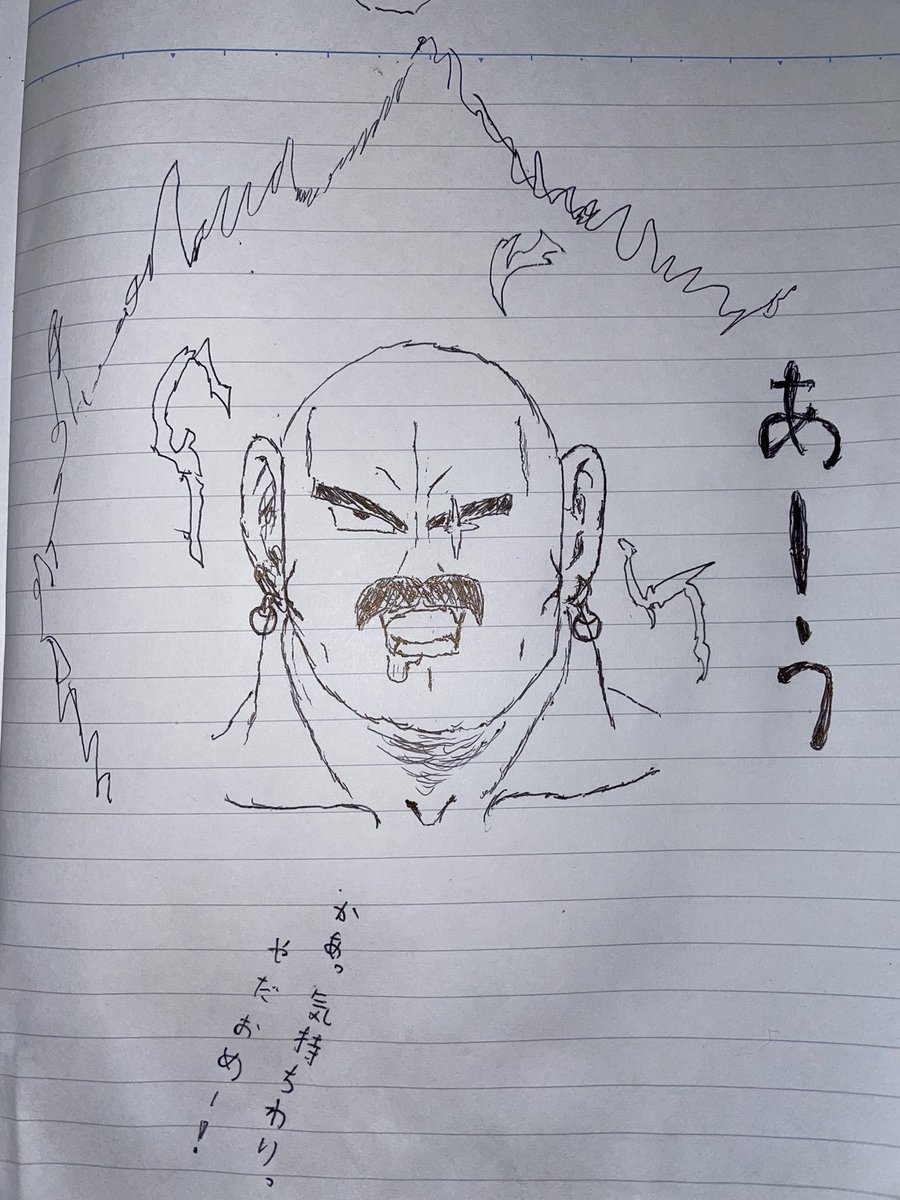 あー・う
かあっ気持ちわりっ
やだおめー！